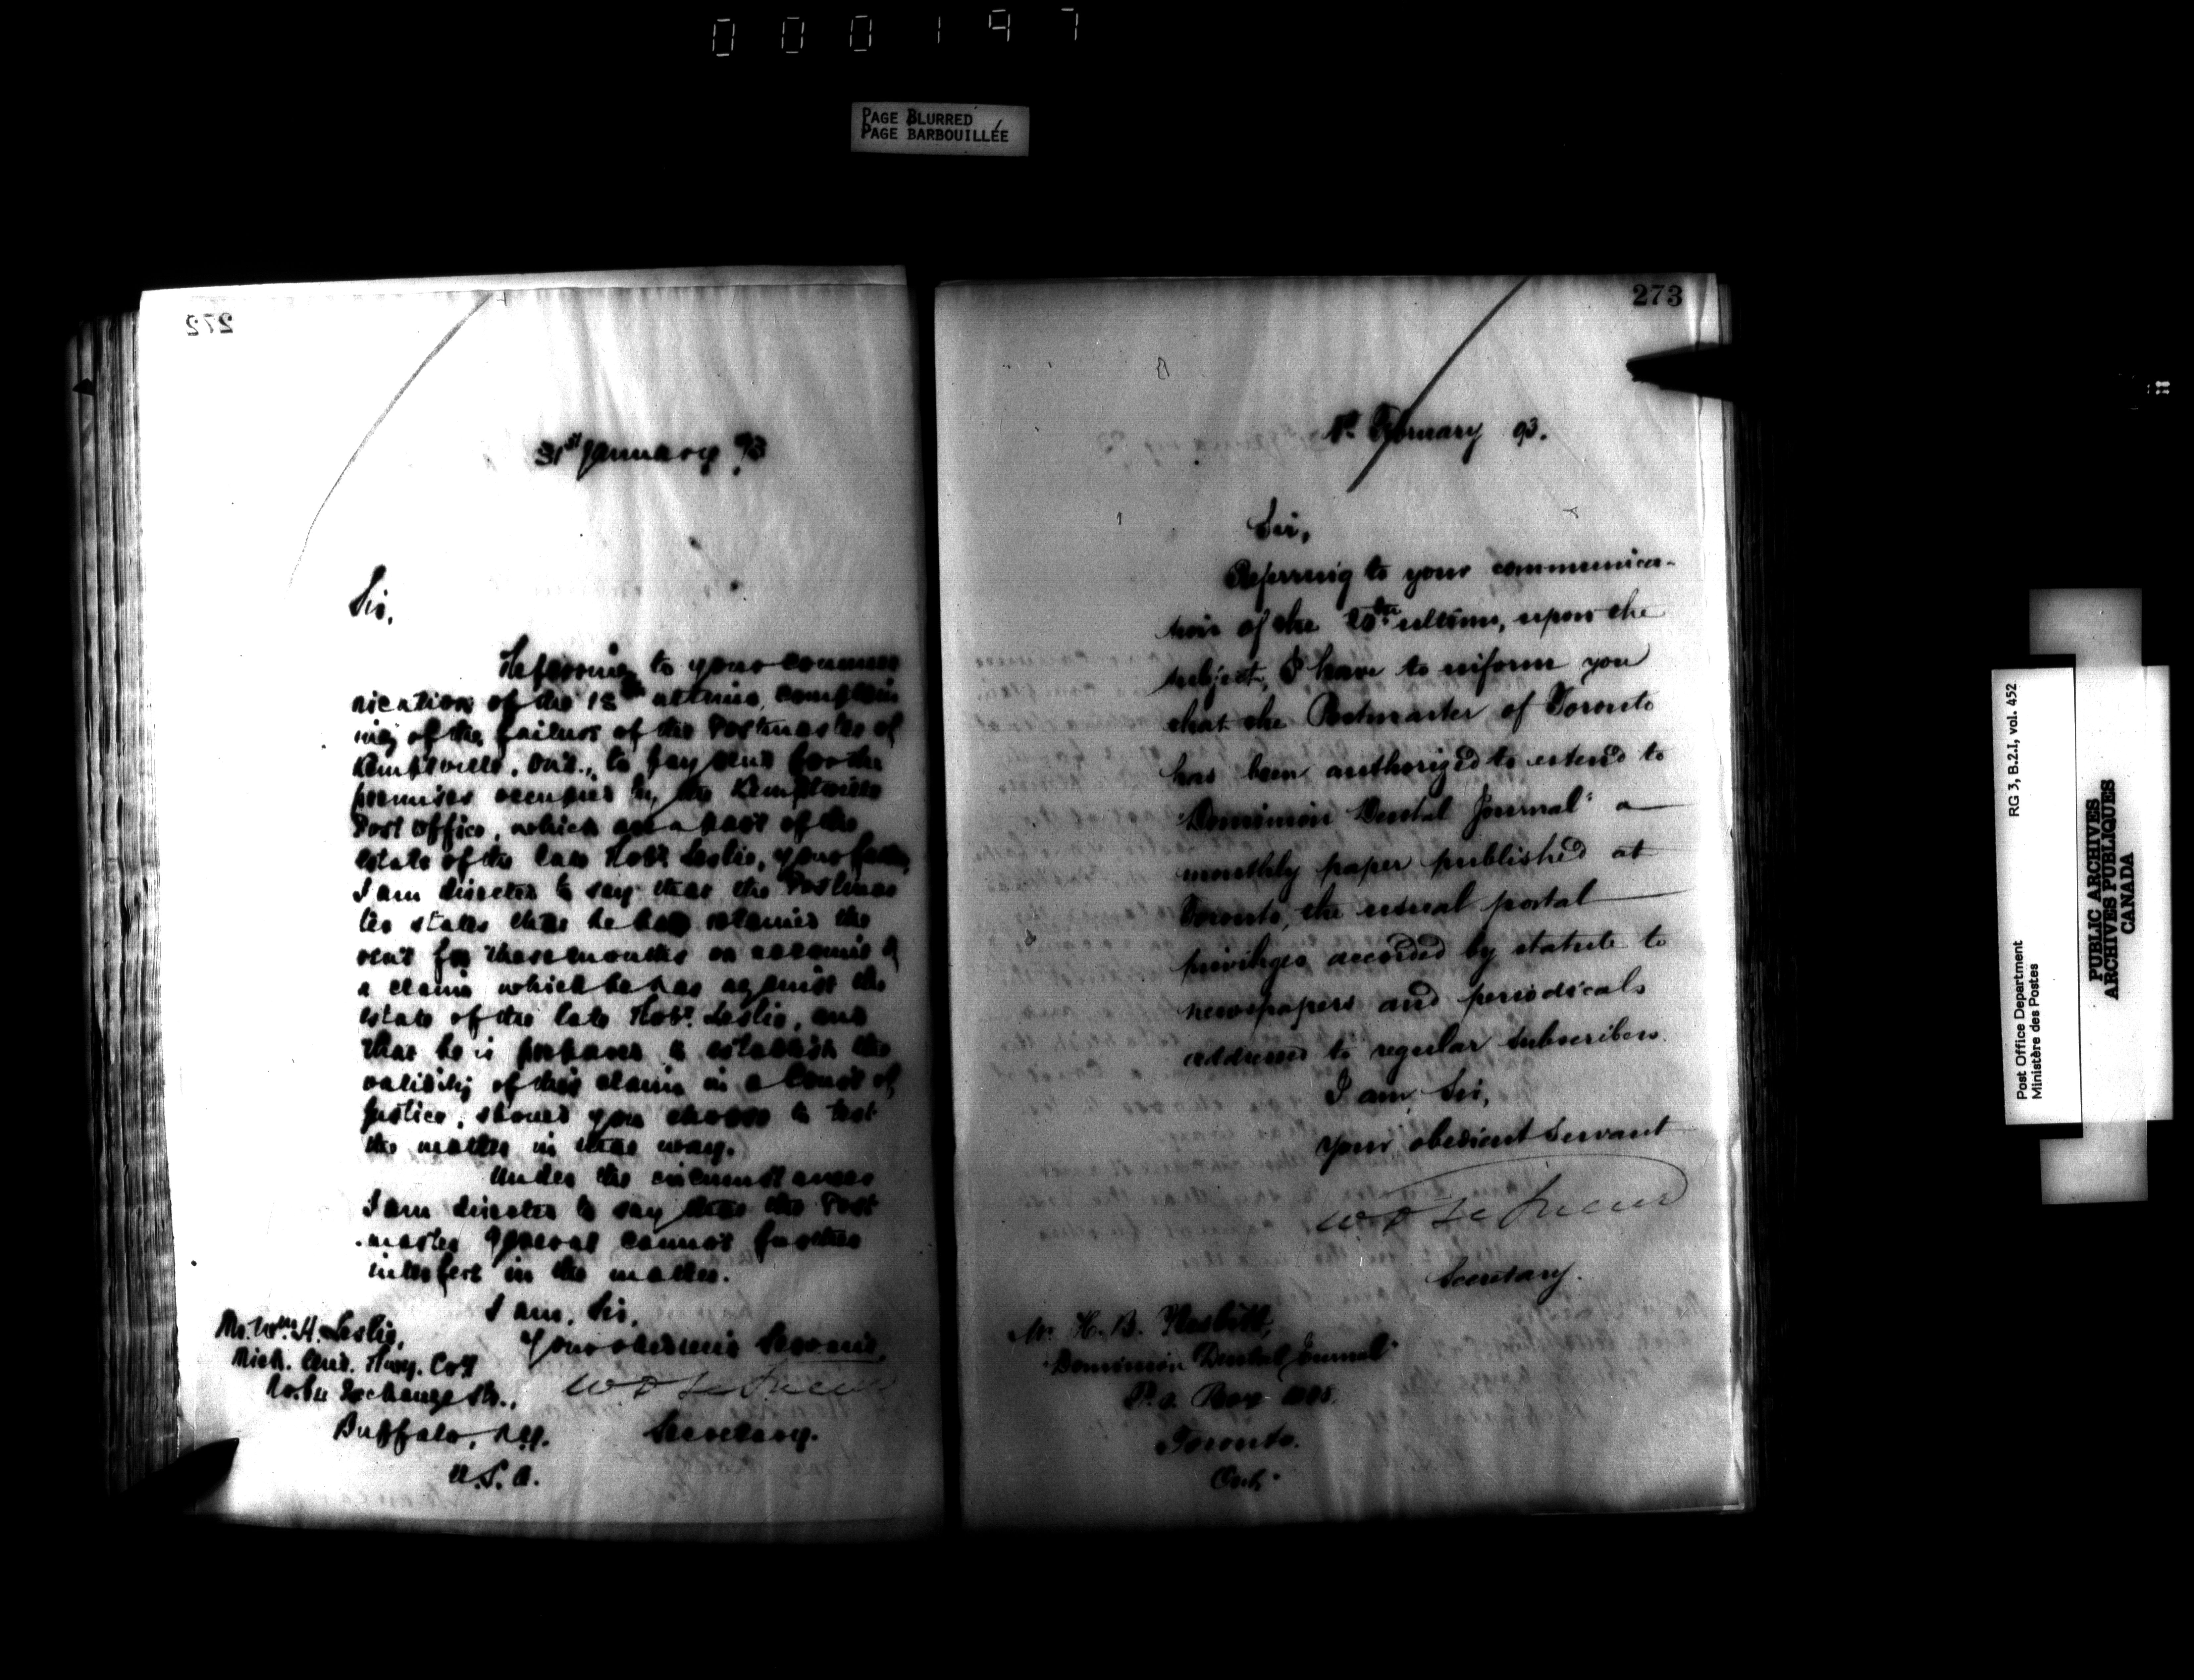 000197
PAGE BLURRED
PAGE BARBOUILLÉE
272
31st January 93
Sir,
Referring to your commu
nication of the 18th ultimo, complain
ing of the failure of the Postmaster of
Kemptville, Ont., to pay rent for the
premises occupied by the Kemptville
Post Office, which are a part of the
estate of the late Robt. Leslie, your father,
I am directed to say that the Postmas
ter states that he has retained the
rent for these months on account of
a claim which he has against the
estate of the late Robt. Leslie, and
that he is prepared to establish the
validity of this claim in a Court of
Justice, should you choose to test
the matter in that way.
Under the circumstances
I am directed to say that the Post
master General cannot further
interfere in the matter.
I am, Sir,
Your obedient Servant,
W D LeSueur
Secretary.
Mr. Wm. H. Leslie,
Exchange St.,
Buffalo, N.Y.
U.S.A.
273
1st February 93.
Sir,
Referring to your communica-
tion of the 20th ultimo, upon the
subject, I have to inform you
that the Postmaster of Toronto
has been authorized to extend to
"Dominion Dental Journal" a
monthly paper published at
Toronto, the usual postal
privileges accorded by statute to
newspapers and periodicals
addressed to regular subscribers.
I am, Sir,
Your obedient Servant
W D LeSueur
Secretary.
Mr. H. B. Nesbitt,
"Dominion Dental Journal"
P.O. Box
Toronto.
Ont.
Post Office Department
Ministère des Postes
RG 3, B.2.I, vol. 452
PUBLIC ARCHIVES
ARCHIVES PUBLIQUES
CANADA